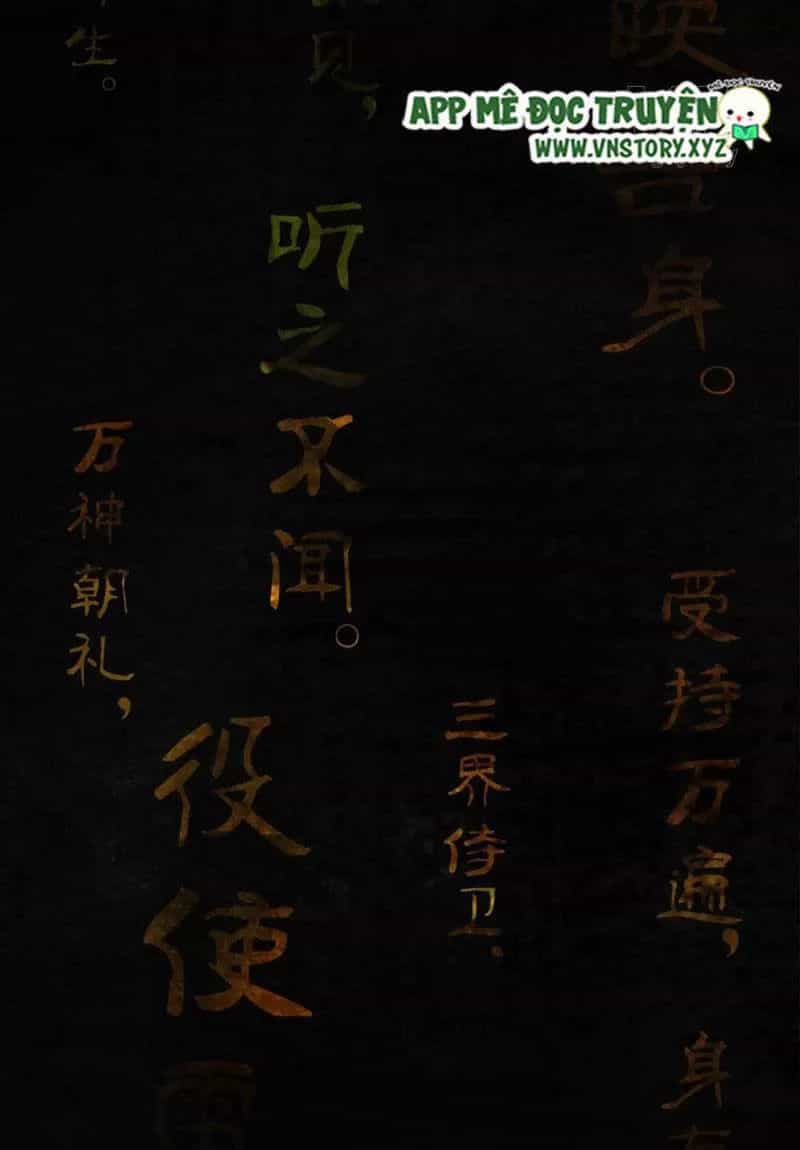 APP MÊ ĐỌC TRUYỆN
MÊ ĐỌC TRUYỆN
WWW.VNSTORY.XYZ
映
吾身。
受持万遍，
身有
三界侍卫，
见，
听之不闻。
役使雷
万神朝礼，
生。